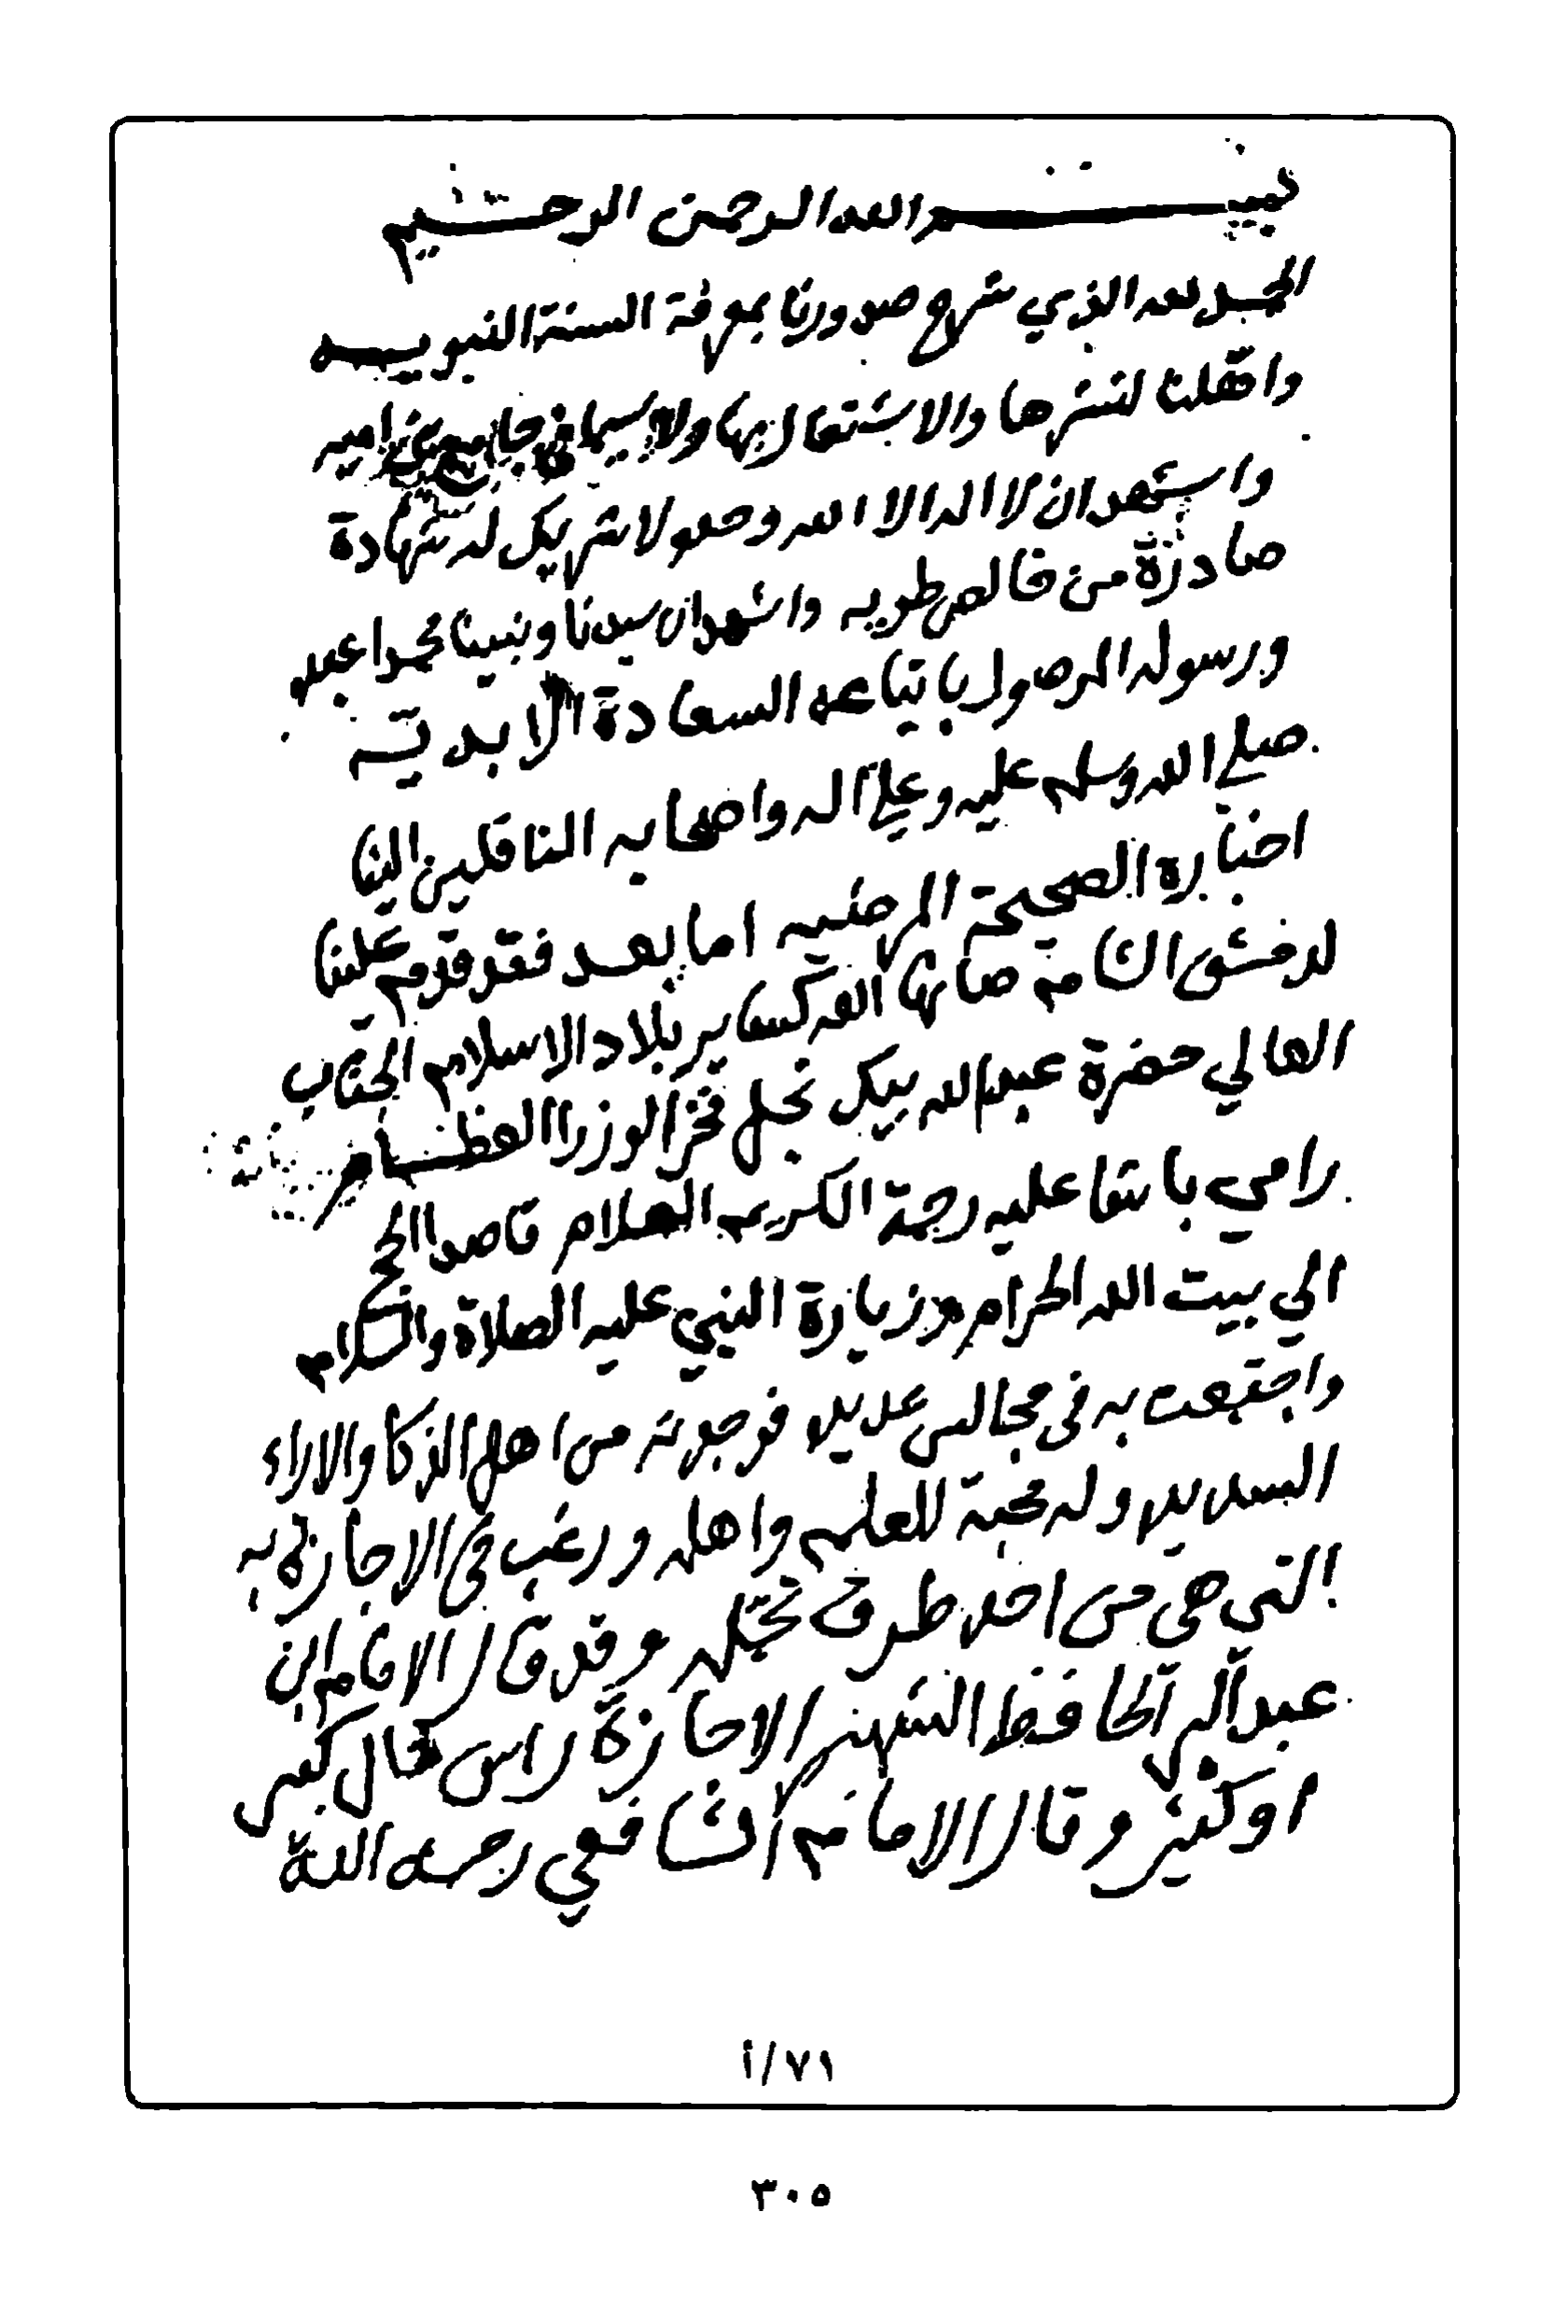 بسم الله الرحمن الرحيم
الحمد لله الذي شرح صدورنا بمعرفة السنة النبويه
واهلنا لنشرها والاشتغال بها ولا سيما في جامع بني اميه
واشهد ان لا اله الا الله وحده لا شريك له شهادة
صادرة من خالص طويه واشهد ان سيدنا ونبينا محمدا عبده
ورسوله الموصول باتباعه السعادة الابديه
صلى الله وسلم عليه وعلى آله واصحابه الناقلين الينا
اخباره الصحيحة المرضيه اما بعد فقد قدم علينا
لدمشق الشام صانها الله كساير بلاد الاسلام الجناب
العالي حضرة عبد الله بيك نجل فخر الوزرا العظام
رامي باشا عليه رحمة الكريم العلام قاصدا الحج
الي بيت الله الحرام وزيارة النبي عليه الصلاة والسلام
واجتمعت به في مجالس عديده فوجدته من اهل الذكا والاراء
السديده وله محبة للعلم واهله ورغب في الاجازة
التي هي من احد طرق تحمله وقد قال الامام ابن
عبد البر الحافظ الشهير الاجازة راس مال كبير
او كثير وقال الامام الشافعي رحمه الله
٧١/أ
٣٠٥